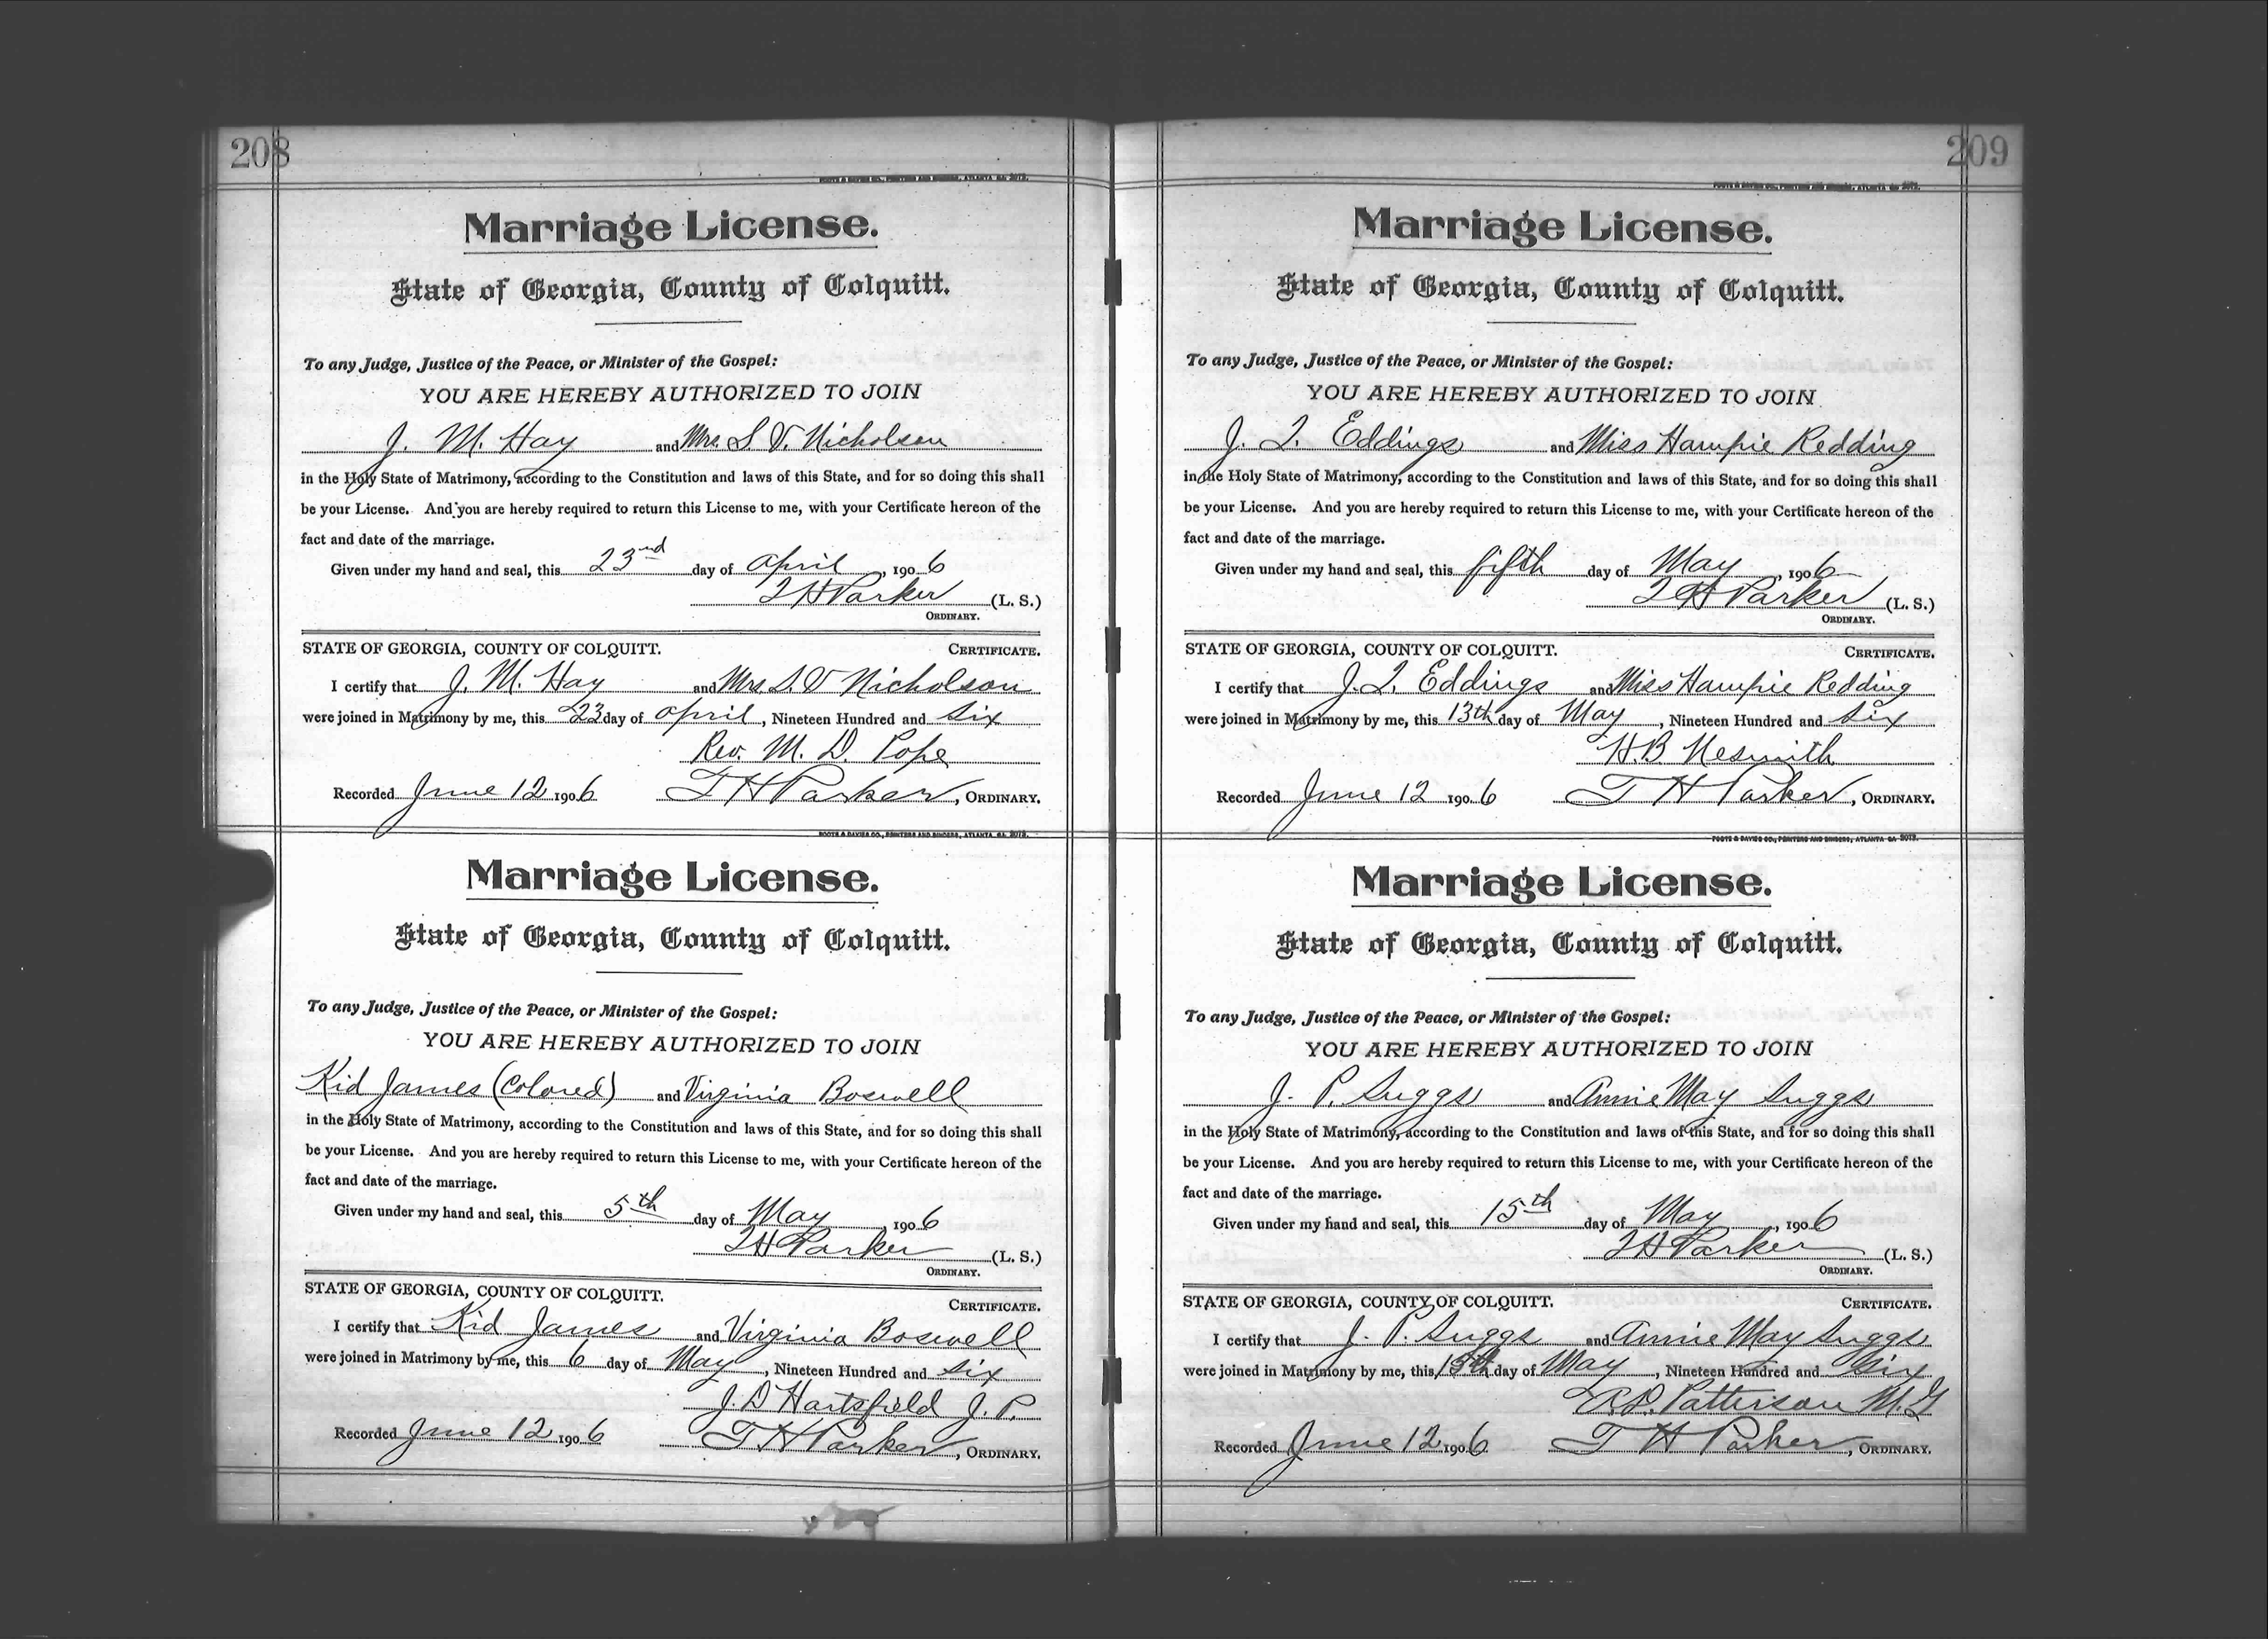 208
FOOTE & DAVIES CO., PRINTERS AND BINDERS, ATLANTA GA 3073.
Marriage License.
State of Georgia, County of Colquitt.
To any Judge, Justice of the Peace, or Minister of the Gospel:
YOU ARE HEREBY AUTHORIZED TO JOIN
J. M. Hay and Mrs. S. V. Nicholson
in the Holy State of Matrimony, according to the Constitution and laws of this State, and for so doing this shall
be your License. And you are hereby required to return this License to me, with your Certificate hereon of the
fact and date of the marriage.
Given under my hand and seal, this 23nd day of April, 1906
T H Parker (L. S.)
ORDINARY.
STATE OF GEORGIA, COUNTY OF COLQUITT. CERTIFICATE.
I certify that J. M. Hay and Mrs S. V Nicholson
were joined in Matrimony by me, this 23 day of April, Nineteen Hundred and Six
Rev. M. D. Pope
Recorded June 12 1906 T H Parker, ORDINARY.
FOOTE & DAVIES CO., PRINTERS AND BINDERS, ATLANTA GA 3073.
Marriage License.
State of Georgia, County of Colquitt.
To any Judge, Justice of the Peace, or Minister of the Gospel:
YOU ARE HEREBY AUTHORIZED TO JOIN
Kid James (Colored) and Virginia Boswell
in the Holy State of Matrimony, according to the Constitution and laws of this State, and for so doing this shall
be your License. And you are hereby required to return this License to me, with your Certificate hereon of the
fact and date of the marriage.
Given under my hand and seal, this 5th day of May, 1906
T H Parker (L. S.)
ORDINARY.
STATE OF GEORGIA, COUNTY OF COLQUITT. CERTIFICATE.
I certify that Kid James and Virginia Boswell
were joined in Matrimony by me, this 6 day of May, Nineteen Hundred and six
J. D Hartsfield J. P.
Recorded June 12 1906 T H Parker, ORDINARY.
209
FOOTE & DAVIES CO., PRINTERS AND BINDERS, ATLANTA GA 3073.
Marriage License.
State of Georgia, County of Colquitt.
To any Judge, Justice of the Peace, or Minister of the Gospel:
YOU ARE HEREBY AUTHORIZED TO JOIN
J. I. Eddings and Miss Hampie Redding
in the Holy State of Matrimony, according to the Constitution and laws of this State, and for so doing this shall
be your License. And you are hereby required to return this License to me, with your Certificate hereon of the
fact and date of the marriage.
Given under my hand and seal, this fifth day of May, 1906
T H Parker (L. S.)
ORDINARY.
STATE OF GEORGIA, COUNTY OF COLQUITT. CERTIFICATE.
I certify that J. I. Eddings and Miss Hampie Redding
were joined in Matrimony by me, this 13th day of May, Nineteen Hundred and Six
H. B Nesmith
Recorded June 12 1906 T H Parker, ORDINARY.
FOOTE & DAVIES CO., PRINTERS AND BINDERS, ATLANTA GA 3073.
Marriage License.
State of Georgia, County of Colquitt.
To any Judge, Justice of the Peace, or Minister of the Gospel:
YOU ARE HEREBY AUTHORIZED TO JOIN
J. P. Suggs and Annie May Suggs
in the Holy State of Matrimony, according to the Constitution and laws of this State, and for so doing this shall
be your License. And you are hereby required to return this License to me, with your Certificate hereon of the
fact and date of the marriage.
Given under my hand and seal, this 15th day of May, 1906
T H Parker (L. S.)
ORDINARY.
STATE OF GEORGIA, COUNTY OF COLQUITT. CERTIFICATE.
I certify that J. P. Suggs and Annie May Suggs
were joined in Matrimony by me, this 15th day of May, Nineteen Hundred and Six
Patterson M. G
Recorded June 12 1906 T H Parker, ORDINARY.